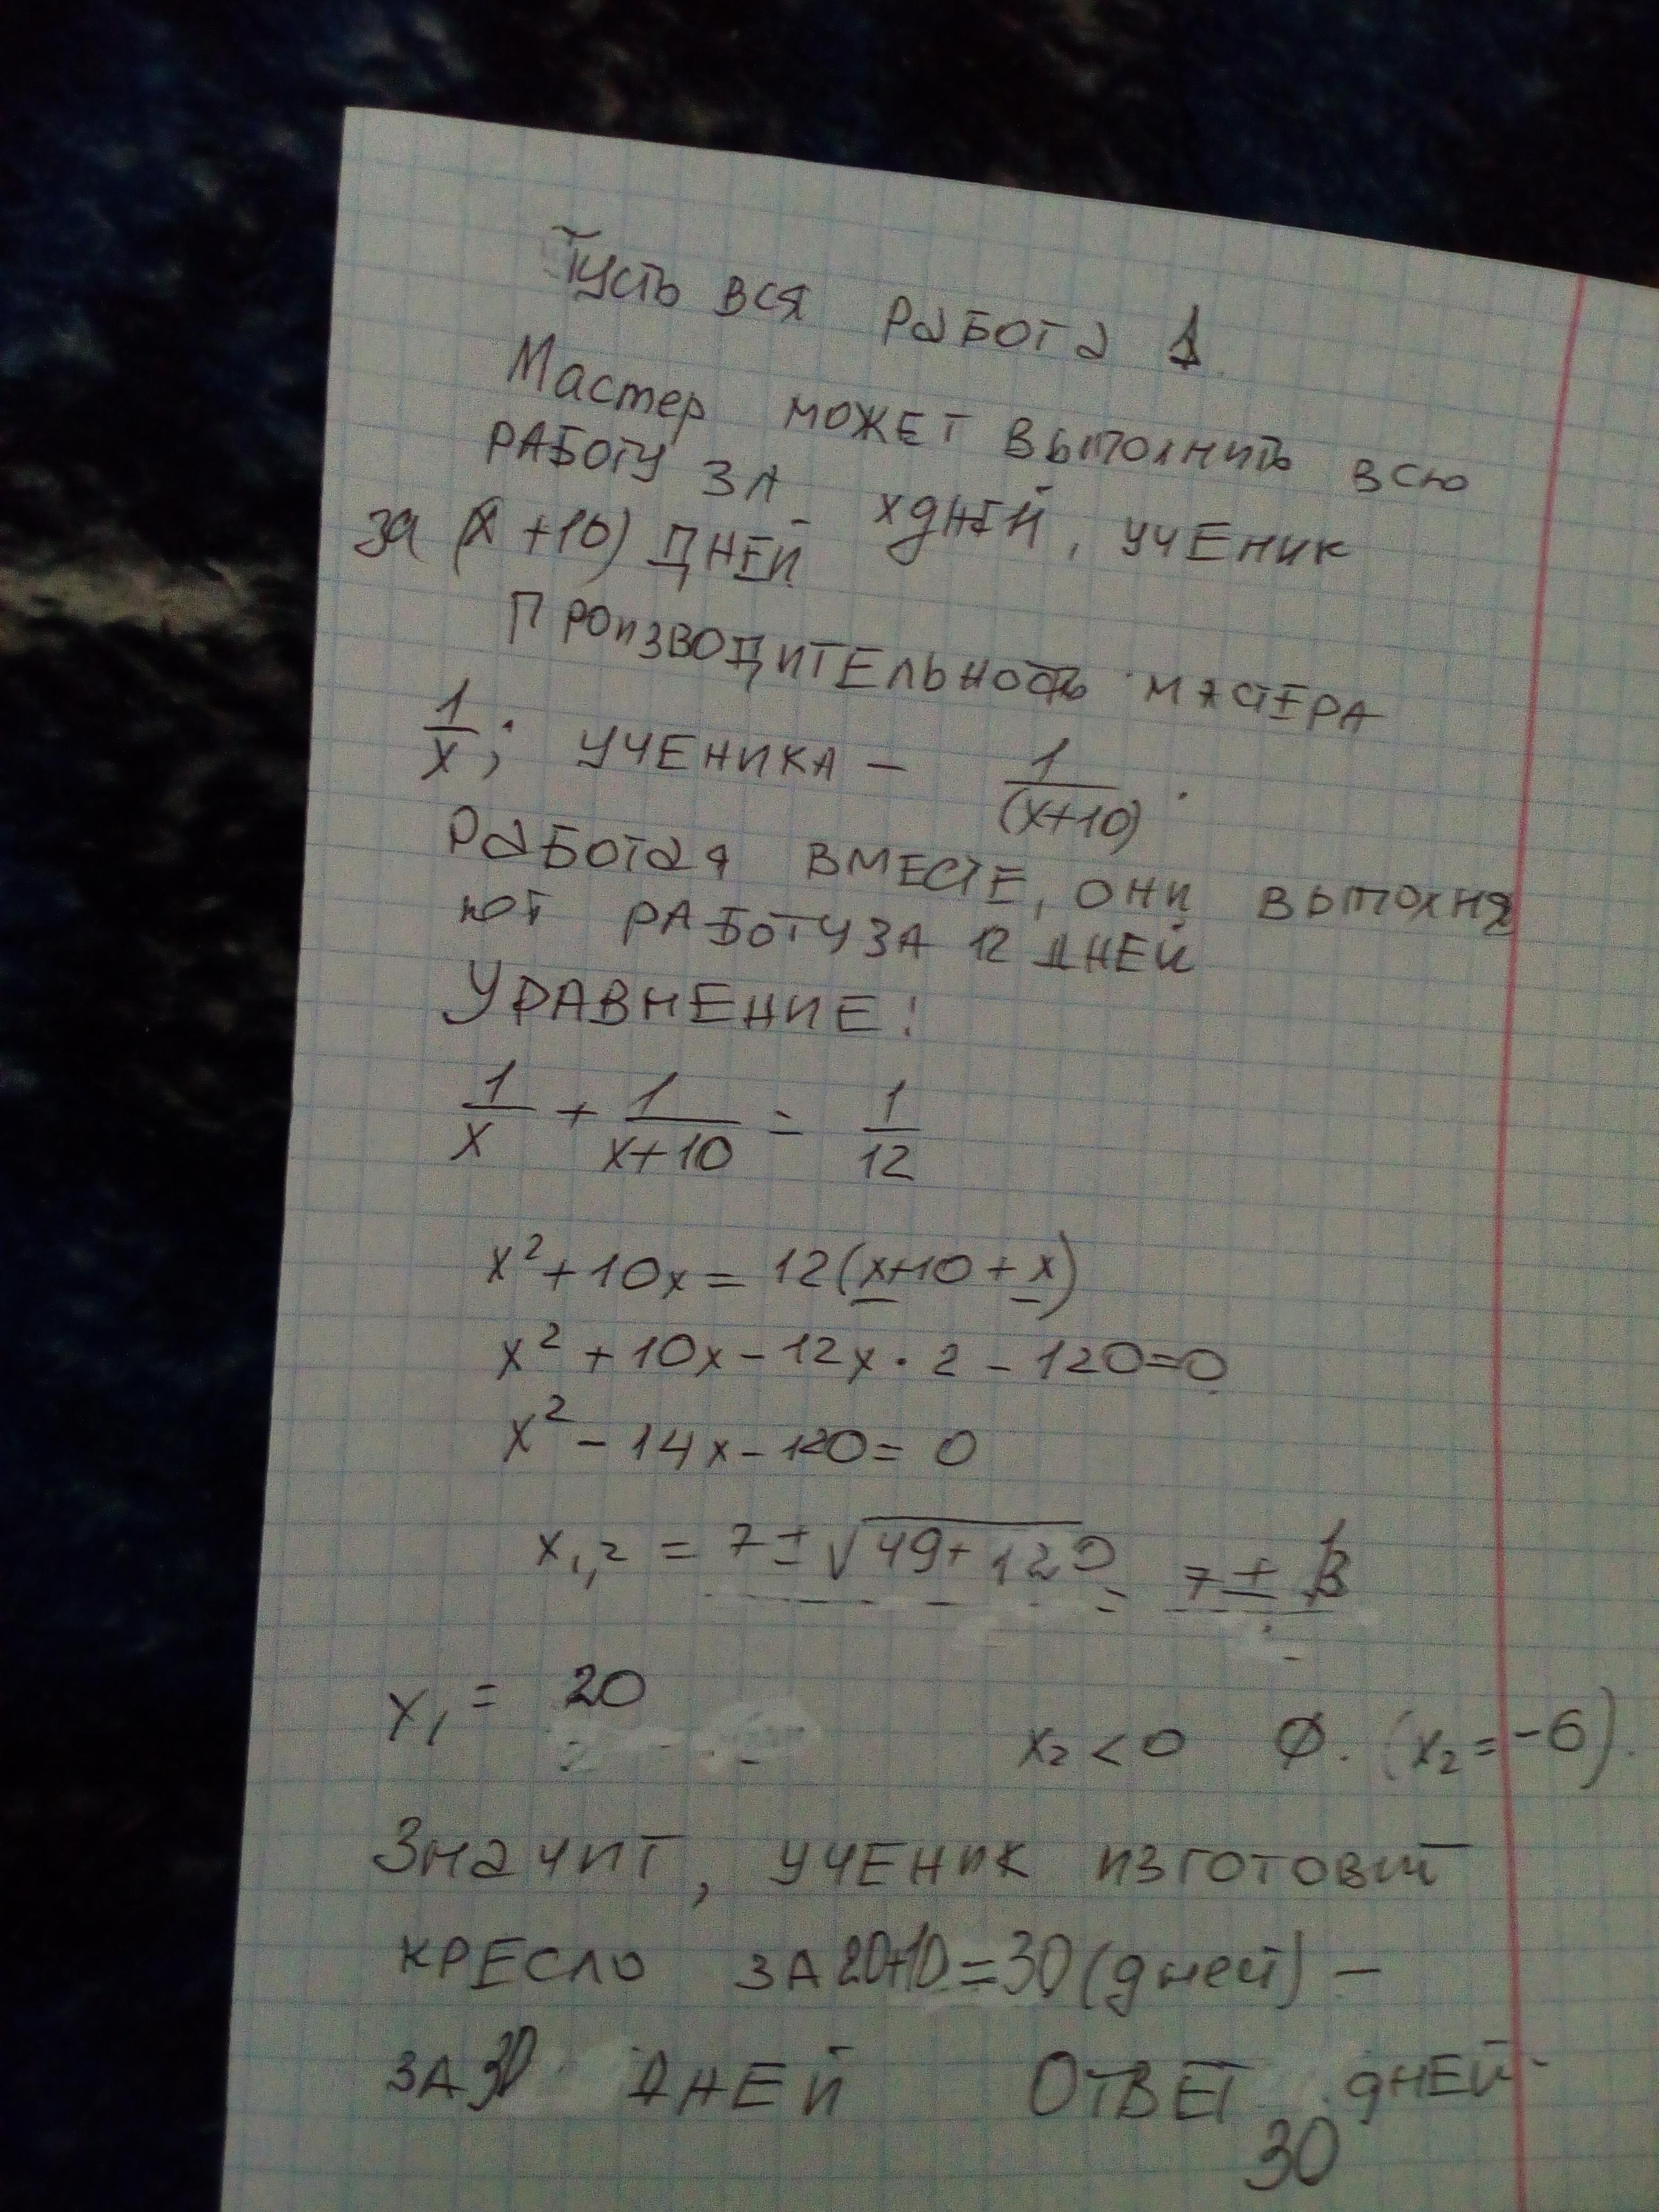 Пусть вся работа 1
Мастер может выполнить всю
работу за x дней, ученик
за (x +10) дней
Производительность мастера
1/x; ученика – 1/(x+10).
Работая вместе, они выполня
ют работу за 12 дней
Уравнение:
1/x + 1/(x+10) = 1/12
x² + 10x = 12(x+10 + x)
x² + 10x – 12x · 2 – 120=0
x² – 14x – 120 = 0
x₁,₂ = 7 ± √(49+120) = 7 ± 13
x₁ = 20 x₂ < 0 ∅. (x₂ = –6).
Значит, ученик изготовит
кресло за 20+10=30 (дней) –
за 30 дней Ответ 30 дней